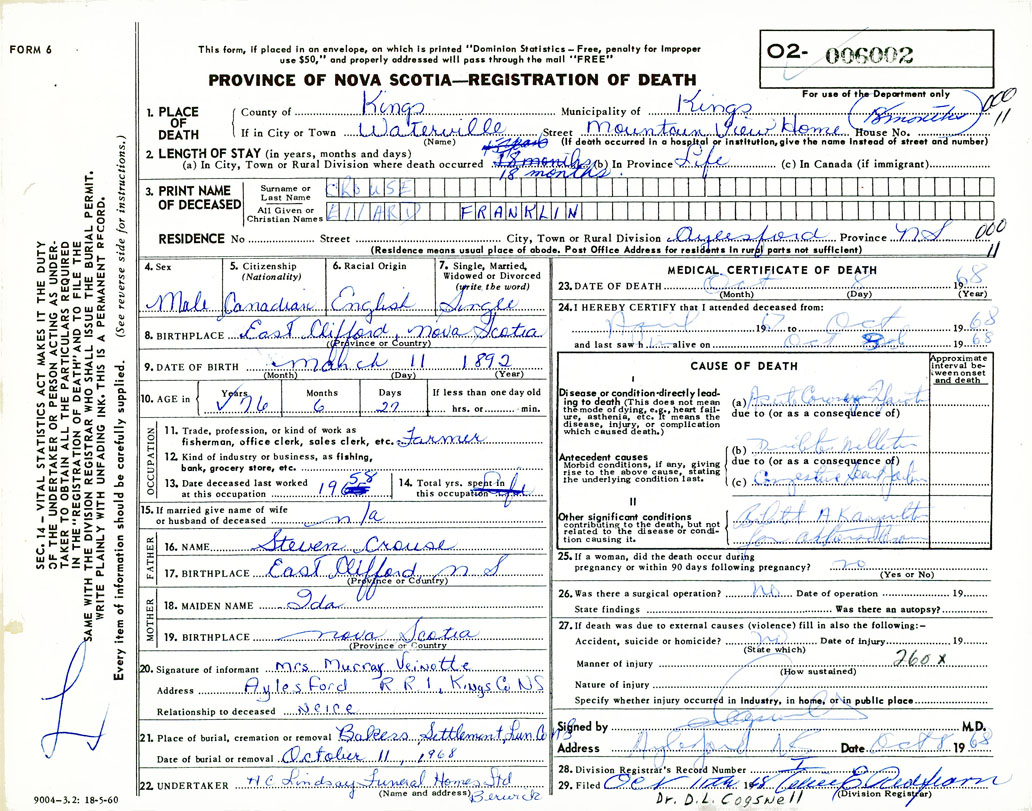 FORM 6
This form, if placed in an envelope, on which is printed "Dominion Statistics – Free, penalty for improper
use $50," and properly addressed will pass through the mail "FREE"
PROVINCE OF NOVA SCOTIA—REGISTRATION OF DEATH
O2- 006002
For use of the Department only
1. PLACE OF DEATH County of Kings Municipality of Kings (18 months) 000 11
If in City or Town Waterville Street Mountain View Home House No.
(Name) (If death occurred in a hospital or institution, give the name instead of street and number)
2. LENGTH OF STAY (in years, months and days)
(a) In City, Town or Rural Division where death occurred 18 months (b) In Province Life (c) In Canada (if immigrant)
18 months.
3. PRINT NAME OF DECEASED
Surname or Last Name CROUSE
All Given or Christian Names ELLARD FRANKLIN
RESIDENCE No Street City, Town or Rural Division Aylesford Province NS 000 11
(Residence means usual place of abode. Post Office Address for residents in rural parts not sufficient)
4. Sex Male
5. Citizenship (Nationality) Canadian
6. Racial Origin English
7. Single, Married, Widowed or Divorced (write the word) Single
8. BIRTHPLACE East Clifford, Nova Scotia
(Province or Country)
9. DATE OF BIRTH March 11 1892
(Month) (Day) (Year)
10. AGE in Years 76 Months 6 Days 27 If less than one day old hrs. or min.
OCCUPATION
11. Trade, profession, or kind of work as
fisherman, office clerk, sales clerk, etc. Farmer
12. Kind of industry or business, as fishing,
bank, grocery store, etc.
13. Date deceased last worked at this occupation 1958
14. Total yrs. spent in this occupation
15. If married give name of wife
or husband of deceased n/a
FATHER
16. NAME Steven Crouse
17. BIRTHPLACE East Clifford, N S
(Province or Country)
MOTHER
18. MAIDEN NAME Ida
19. BIRTHPLACE Nova Scotia
(Province or Country
20. Signature of informant Mrs Murray Veinotte
Address Aylesford R R 1, Kings Co NS
Relationship to deceased Neice
21. Place of burial, cremation or removal Bakers Settlement Lun Co NS
Date of burial or removal October 11, 1968
22. UNDERTAKER H C Lindsay Funeral Homes Ltd
(Name and address) Berwick
9004–3.2: 18-5-60
MEDICAL CERTIFICATE OF DEATH
23. DATE OF DEATH Oct 8 1968
(Month) (Day) (Year)
24. I HEREBY CERTIFY that I attended deceased from:
April 1967 to Oct 1968
and last saw him alive on Oct 1968
CAUSE OF DEATH
Approximate interval between onset and death
I
Disease or condition directly leading to death (This does not mean the mode of dying, e.g., heart failure, asthenia, etc. It means the disease, injury, or complication which caused death.)
(a) Acute Coronary
due to (or as a consequence of)
Antecedent causes
Morbid conditions, if any, giving rise to the above cause, stating the underlying condition last.
(b)
due to (or as a consequence of)
(c) Congestive Heart Failure
II
Other significant conditions
contributing to the death, but not related to the disease or condition causing it.
25. If a woman, did the death occur during
pregnancy or within 90 days following pregnancy? no
(Yes or No)
26. Was there a surgical operation? No Date of operation 19
State findings Was there an autopsy?
27. If death was due to external causes (violence) fill in also the following:–
Accident, suicide or homicide? no Date of injury 19
(State which)
Manner of injury 260 x
(How sustained)
Nature of injury
Specify whether injury occurred in industry, in home, or in public place
Signed by M.D.
Address Aylesford NS Date Oct 8 1968
28. Division Registrar's Record Number I
29. Filed Oct 11th 1968
(Division Registrar)
Dr. D.L. Cogswell
SEC. 14 – VITAL STATISTICS ACT MAKES IT THE DUTY
OF THE UNDERTAKER OR PERSON ACTING AS UNDER-
TAKER TO OBTAIN ALL THE PARTICULARS REQUIRED
IN THE "REGISTRATION OF DEATH" AND TO FILE THE
SAME WITH THE DIVISION REGISTRAR WHO SHALL ISSUE THE BURIAL PERMIT.
WRITE PLAINLY WITH UNFADING INK. THIS IS A PERMANENT RECORD.
Every item of information should be carefully supplied. (See reverse side for instructions.)